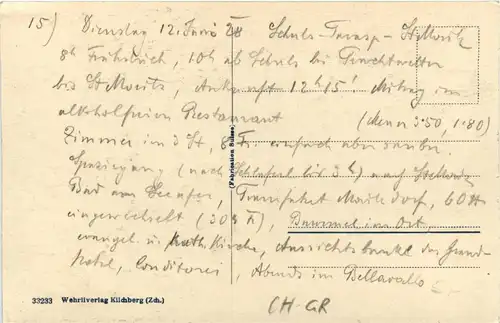 15) Dienstag 12. Juni 28 Schuls-Tarasp-St. Moritz
8h Frühstück, 10h ab Schuls bei Prachtwetter
bis St. Moritz, Ankunft 12h15' Mittag im
alkoholfreien Restaurant (Menu 3.50, 1.80)
Zimmer im 3 St, 8 Fr. einfach aber sauber.
Spaziergang (nach Schlaferl bis 3h) nach St. Moritz
Bad am Seeufer, Tramfahrt Moritz Dorf, 60
eingewechselt (30 ), Bummel im Ort,
evangel. u. kath. Kirche, Aussichtsbankl des Grand-
hotel, Conditorei, Abends im Bellavallo
CH-GR
(Fabrication Suisse)
33233 Wehrliverlag Kilchberg (Zch.)